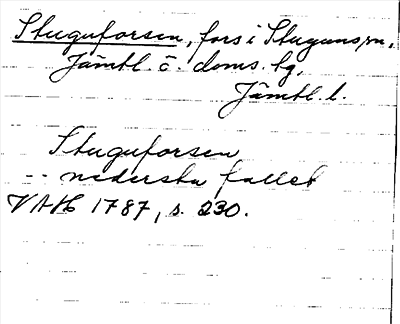 Stuguforsen, fors i Stuguns sn,
Jämtl. ö. doms. hg,
Jämtl. l.
Stuguforsen
-- nedersta fallet
VAH 1787, s. 230.